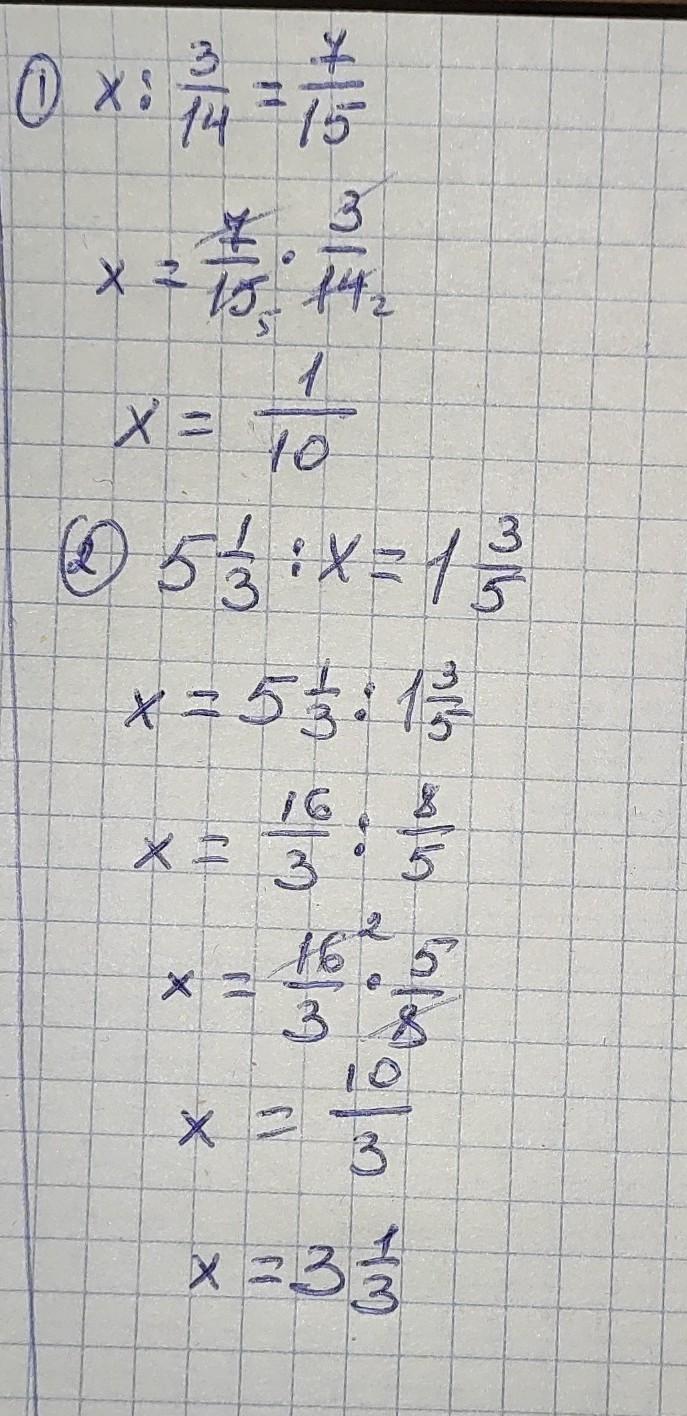 ① x : 3/14 = 7/15
x = 7/15 5 · 3/14 2
x = 1/10
② 5 1/3 : x = 1 3/5
x = 5 1/3 : 1 3/5
x = 16/3 : 8/5
x = 16 2/3 · 5/8
x = 10/3
x = 3 1/3